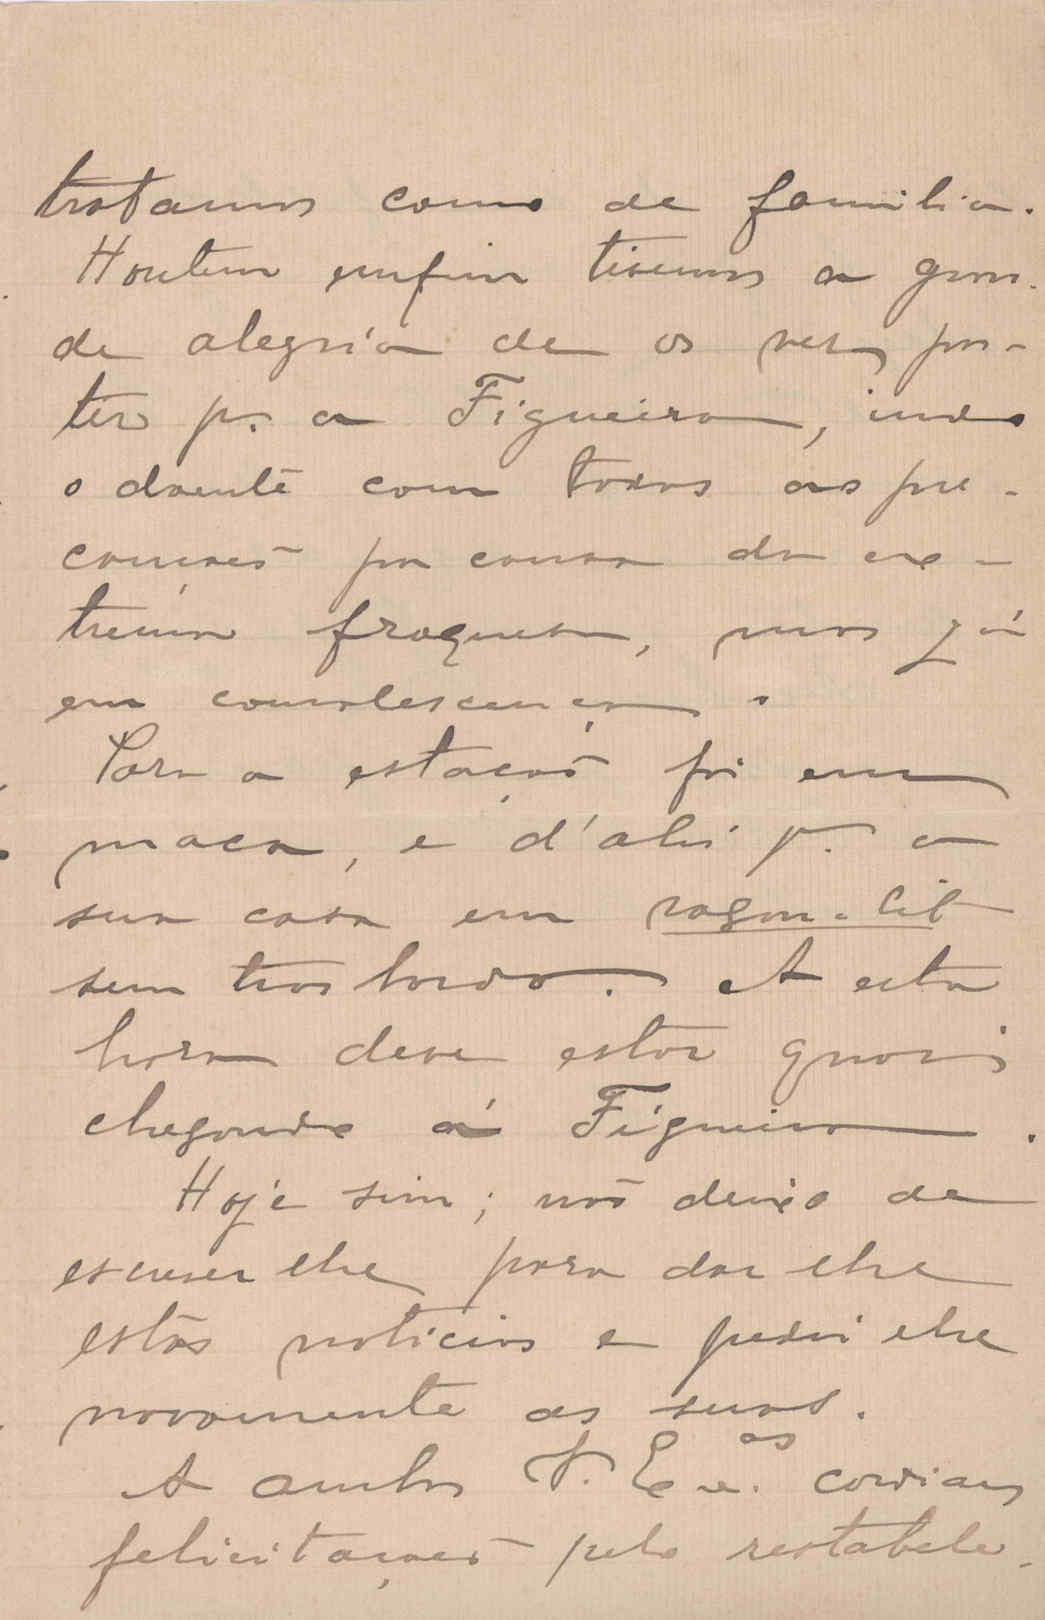 tratamos como de familia.
Hontem emfim tivemos a gran-
de alegria de os ver par-
tir p.ª a Figueira, indo
o doente com todas as pre-
cauções por causa da ex-
trema fraqueza, mas já
em convalescença.
Para a estação foi em
maca, e d'ali p.ª a
sua casa em vagon-lit
sem trasbordo. A esta
hora deve estar quasi
chegando á Figueira.
Hoje sim; não deixo de
escrever lhe para dar lhe
estas noticias e pedir lhe
novamente as suas.
A ambos V. Ex.as cordiaes
felicitações pelo restabele-